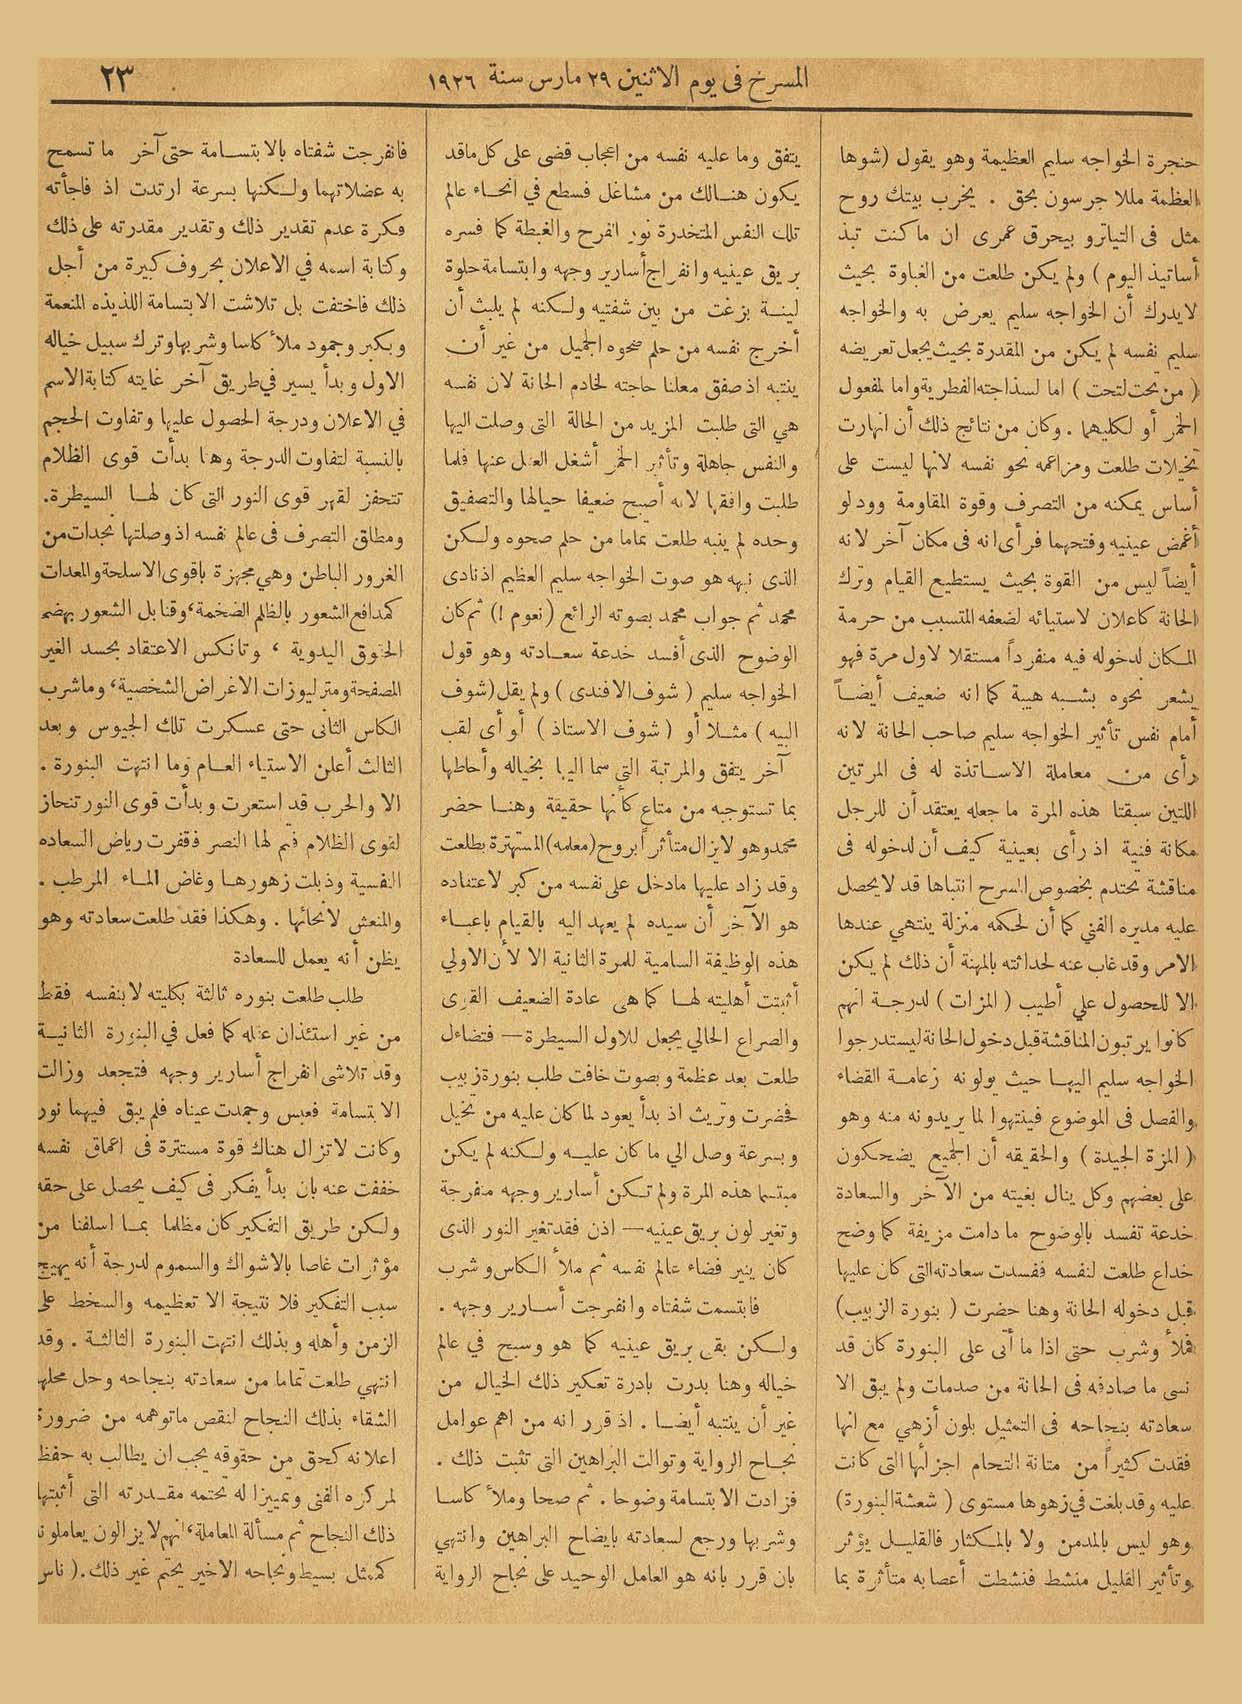 المسرح فى يوم الاثنين ٢٩ مارس سنة ١٩٢٦
٢٣
حنجرة الخواجه سليم العظيمة وهو يقول (شوها
العظمة مللا جرسون بحق . يخرب بيتك روح
مثل فى التياترو بيحرق عمرى ان ماكنت تبذ
أساتيذ اليوم ) ولم يكن طلعت من الغباوة بحيث
لايدرك أن الخواجه سليم يعرض به والخواجه
سليم نفسه لم يكن من المقدرة بحيث يجعل تعريضه
( من تحت لتحت ) اما لسذاجته الفطرية واما لمفعول
الخمر أو لكليهما . وكان من نتائج ذلك أن انهارت
تخيلات طلعت ومزاعمه نحو نفسه لانها ليست على
أساس يمكنه من التصرف وقوة المقاومة وود لو
أغمض عينيه وفتحهما فرأى انه فى مكان آخر لانه
أيضاً ليس من القوة بحيث يستطيع القيام وترك
الحانة كاعلان لاستيائه لضعفه المتسبب من حرمة
المكان لدخوله فيه منفرداً مستقلا لاول مرة فهو
يشعر نحوه بشبه هيبة كما انه ضعيف أيضاً
أمام نفس تأثير الخواجه سليم صاحب الحانة لانه
رأى من معاملة الاساتذة له فى المرتين
اللتين سبقتا هذه المرة ما جعله يعتقد أن للرجل
مكانة فنية اذ رأى بعينية كيف أن لدخوله فى
مناقشة تحتدم بخصوص المسرح انتباها قد لايحصل
عليه مديره الفني كما أن لحكمه منزلة ينتهي عندها
الامر وقد غاب عنه لحداثته بالمهنة أن ذلك لم يكن
الا للحصول علي أطيب ( المزات ) لدرجة انهم
كانوا يرتبون المناقشة قبل دخول الحانة ليستدرجوا
الخواجه سليم اليها حيث يولونه زعامة القضاء
والفصل فى الموضوع فينتهوا لما يريدونه منه وهو
( المزة الجيدة ) والحقيقه أن الجميع يضحكون
على بعضهم وكل ينال بغيته من الآخر والسعادة
خدعة تفسد بالوضوح مادامت مزيفة كما وضح
خداع طلعت لنفسه ففسدت سعادته التى كان عليها
قبل دخوله الحانة وهنا حضرت ( بنورة الزبيب)
فملأ وشرب حتى اذا ما أتى على البنورة كان قد
نسى ما صادفه فى الحانة من صدمات ولم يبق الا
سعادته بنجاحه فى التمثيل بلون أزهي مع انها
فقدت كثيراً من متانة التحام اجزائها التى كانت
عليه وقد بلغت في زهوها مستوى ( شعشة البنورة)
وهو ليس بالمدمن ولا بالمكثار فالقليل يؤثر
وتأثير القليل منشط فنشطت أعصابه متأثرة بما
يتفق وما عليه نفسه من اعجاب قضى على كل ما قد
يكون هنالك من مشاغل فسطع في انحاء عالم
تلك النفس المتخدرة نور الفرح والغبطة كما فسره
بريق عينيه وانفراج أسارير وجهه وابتسامة حلوة
لينة بزغت من بين شفتيه ولكنه لم يلبث أن
أخرج نفسه من حلم صحوه الجميل من غير أن
ينتبه اذ صفق معلنا حاجته لخادم الحانة لان نفسه
هي التى طلبت المزيد من الحالة التى وصلت اليها
والنفس جاهلة وتأثير الخمر أشغل العقل عنها فلما
طلبت وافقها لانه أصبح ضعيفا حيالها والتصفيق
وحده لم ينبه طلعت تماما من حلم صحوه ولكن
الذى نبهه هو صوت الخواجه سليم العظيم اذ نادى
محمد ثم جواب محمد بصوته الرائع (نعوم !) ثم كان
الوضوح الذى أفسد خدعة سعادته وهو قول
الخواجه سليم ( شوف الافندى ) ولم يقل (شوف
البيه ) مثلا أو ( شوف الاستاذ ) أو أى لقب
آخر يتفق والمرتبة التي سما اليها بخياله وأحاطها
بما تستوجبه من متاع كأنها حقيقة وهنا حضر
محمد وهو لايزال متأثراً بروح (معلمه) المستهترة بطلعت
وقد زاد عليها مادخل على نفسه من كبر لاعتقاده
هو الآخر أن سيده لم يعهد اليه بالقيام باعباء
هذه الوظيفة السامية للمرة الثانية الا لأن الاولي
أثبتت أهليته لها كما هى عادة الضعيف القوى
والصراع الحالي يجعل للاول السيطرة — فتضاءل
طلعت بعد عظمة وبصوت خافت طلب بنورة زبيب
فحضرت وتريث اذ بدأ يعود لما كان عليه من تخيل
وبسرعة وصل الي ما كان عليه ولكنه لم يكن
مبتسما هذه المرة ولم تكن أسارير وجهه منفرجة
وتغير لون بريق عينيه — اذن فقد تغير النور الذى
كان ينير فضاء عالم نفسه ثم ملأ الكاس وشرب
فابتسمت شفتاه وانفرجت أسارير وجهه .
ولكن بقى بريق عينيه كما هو وسبح في عالم
خياله وهنا بدرت بادرة تعكير ذلك الخيال من
غير أن ينتبه أيضا . اذ قرر انه من اهم عوامل
نجاح الرواية وتوالت البراهين التى تثبت ذلك .
فزادت الابتسامة وضوحا . ثم صحا وملأ كاسا
وشربها ورجع لسعادته بايضاح البراهين وانتهي
بان قرر بانه هو العامل الوحيد على نجاح الرواية
فانفرجت شفتاه بالابتسامة حتى آخر ما تسمح
به عضلاتهما ولكنها بسرعة ارتدت اذ فاجأته
فكرة عدم تقدير ذلك وتقدير مقدرته على ذلك
وكتابة اسمه في الاعلان بحروف كبيرة من أجل
ذلك فاختفت بل تلاشت الابتسامة اللذيذه المنعمة
وبكبر وجمود ملأ كاسا وشربها وترك سبيل خياله
الاول وبدأ يسير في طريق آخر غايته كتابة الاسم
في الاعلان ودرجة الحصول عليها وتفاوت الحجم
بالنسبة لتفاوت الدرجة وهنا بدأت قوى الظلام
تتحفز لقهر قوى النور التى كان لها السيطرة.
ومطلق التصرف فى عالم نفسه اذ وصلتها نجدات من
الغرور الباطن وهي مجهزة باقوى الاسلحة والمعدات
كمدافع الشعور بالظلم الضخمة، وقنابل الشعور بهضم
الحقوق اليدوية ، وتانكس الاعتقاد بحسد الغير
المصفحة ومترليوزات الاغراض الشخصية، وماشرب
الكاس الثانى حتى عسكرت تلك الجيوس وبعد
الثالث أعلن الاستياء العام وما انتهت البنورة .
الا والحرب قد استعرت وبدأت قوى النور تنحاز
لقوى الظلام فتم لها النصر فقفرت رياض السعاده
النفسية وذبلت زهورها وغاض الماء المرطب .
والمنعش لانحائها . وهكذا فقد طلعت سعادته وهو
يظن أنه يعمل للسعادة
طلب طلعت بنوره ثالثة بكليته لا بنفسه فقط
من غير استئذان عقله كما فعل في البنورة الثانية
وقد تلاشى انفراج أسارير وجهه فتجعد وزالت
الابتسامة فعبس وجمدت عيناه فلم يبق فيهما نور
وكانت لاتزال هناك قوة مستترة فى اعماق نفسه
خففت عنه بان بدأ يفكر فى كيف يحصل على حقه
ولكن طريق التفكير كان مظلما بما اسلفنا من
مؤثرات غاصا بالاشواك والسموم لدرجة أنه يهيج
سبب التفكير فلا نتيجة الا تعظيمه والسخط على
الزمن وأهله وبذلك انتهت البنورة الثالثة . وقد
انتهي طلعت تماما من سعادته بنجاحه وحل محلها
الشقاء بذلك النجاح لنقص ماتوهمه من ضرورة
اعلانه كحق من حقوقه يجب ان يطالب به حفظ
لمركزه الفنى وتمييزا له تحتمه مقدرته التى أثبتها
ذلك النجاح ثم مسألة المعاملة، انهم لايزالون يعاملونه
كممثل بسيط ونجاحه الاخير يحتم غير ذلك. ( ناس